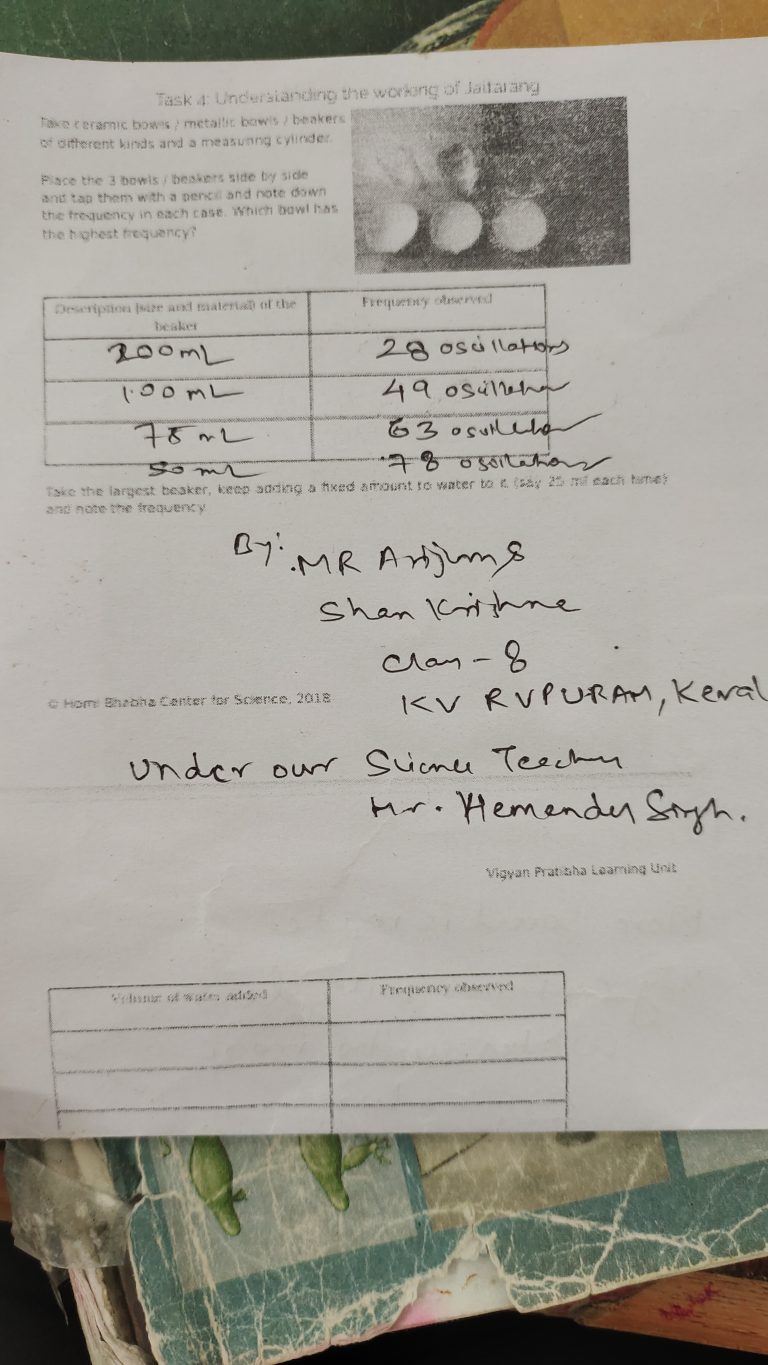 Task 4: Understanding the working of Jaltarang
Take ceramic bowls / metallic bowls / beakers
of different kinds and a measuring cylinder.
Place the 3 bowls / beakers side by side
and tap them with a pencil and note down
the frequency in each case. Which bowl has
the highest frequency?
Description (size and material) of the beaker Frequency observed
200 mL 28 oscillations
100 mL 49 oscillation
75 mL 63 oscillation
50 mL 78 oscillations
Take the largest beaker, keep adding a fixed amount to water to it (say 25 ml each time)
and note the frequency
By: MR
Shan Krishna
Class - 8
© Homi Bhabha Center for Science, 2018
KV RVPURAM, Keral
Under our Science Teacher
Mr. Hemender Singh.
Vigyan Pratibha Learning Unit
Volume of water added Frequency observed